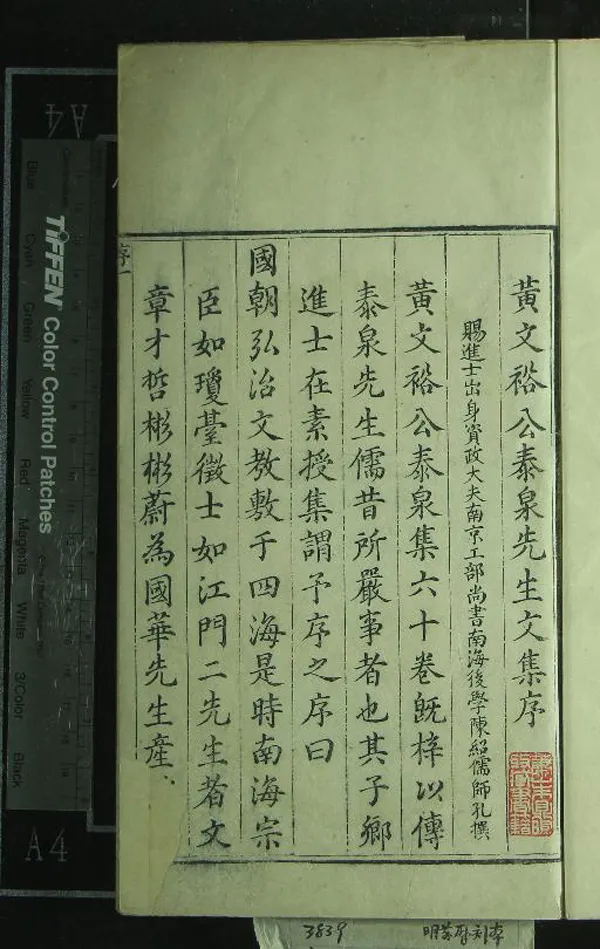 黃文裕公泰泉先生文集序
賜進士出身資政大夫南京工部尚書南海後學陳紹儒師孔撰
黃文裕公泰泉集六十卷旣梓以傳
泰泉先生儒昔所嚴事者也其子鄉
進士在素授集謂予序之序曰
國朝弘治文教敷于四海是時南海宗
臣如瓊臺徵士如江門二先生者文
章才哲彬彬蔚為國華先生產
序
A4
TIFFEN Color Control Patches
Blue
Cyan
Green
Yellow
Red
Magenta
White
3/Color
Black
A4
3839
明萬曆刻本